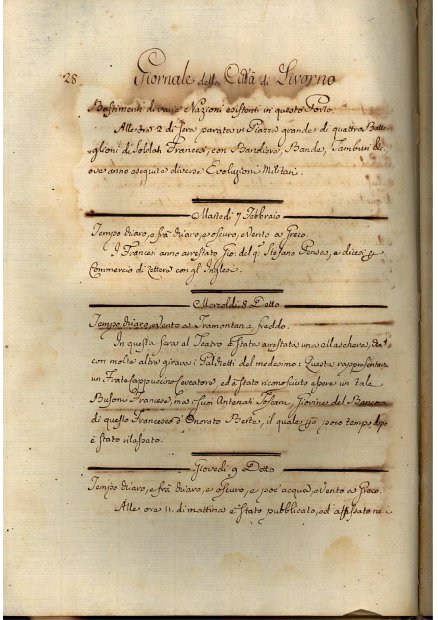 28 Giornale della Città di Livorno
Bastimenti di varie Nazioni esistenti in questo Porto.
Alle ore 2 di sera parata in Piazza grande di quattro Batta-
glioni di Soldati Francesi, con Bandiere, Bande, Tamburi &c.
ove anno eseguite diverse Evoluzioni Militari.
Martedì 7 Febbraio
Tempo chiaro, e frà chiaro, e oscuro, e Vento a Greco.
I Francesi anno arrestato Gio: del q.m Stefano e dicesi p
Commercio di Lettere con gl'Inglesi.
Mercoldì 8 Detto
Tempo chiaro, e Vento a Tramontana e freddo.
In questa sera al Teatro è stata arrestata una Maschera,
con molte altre girava i Palchetti del medesimo. Questa rappresentava
un Frate Cappuccino Cercatore ed è stato riconosciuto essere un tale
Francese, ma i suoi Antenati Toscani, Giovine del Banco
di questo Francesco d'Onorato Berte, il quale poco tempo dopo
è stato rilassato.
Giovedì 9 Detto
Tempo chiaro, e frà chiaro, e oscuro, e poc'acqua, e Vento a Greco.
Alle ore 11. di mattina è stato pubblicato, ed affissato ne i